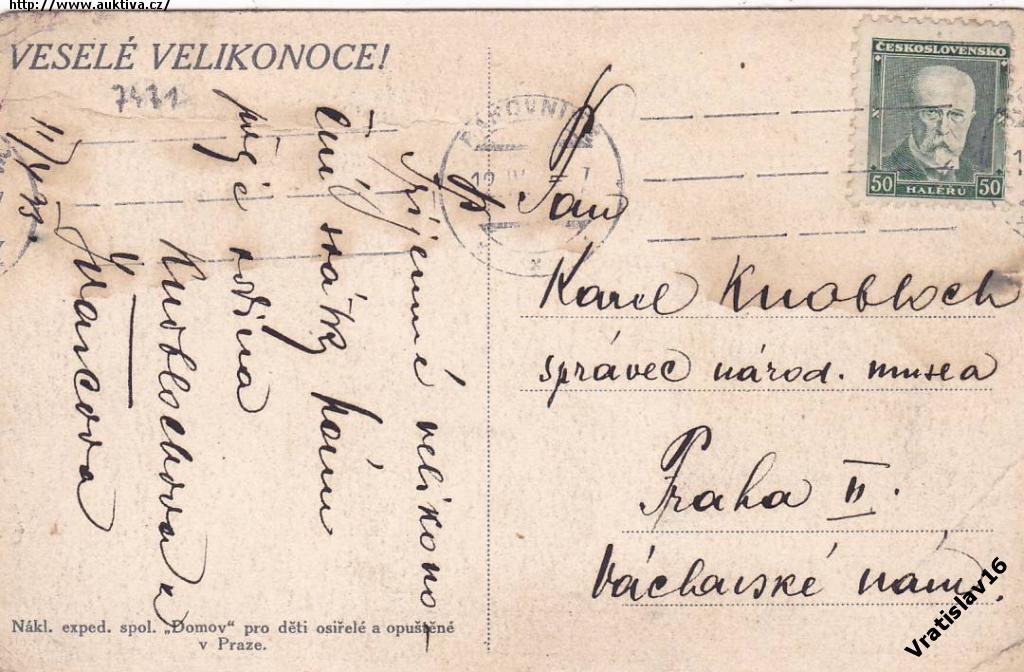 http://www.auktiva.cz/
VESELÉ VELIKONOCE!
7471
Příjemné velikono-
ční svátky
přeje rodina
Knoblochova a
Marešova
ČESKOSLOVENSKO
50 HALÉŘŮ 50
Pan
Karel Knobloch
správec národ. musea
Praha II.
Václavské nám.
Nákl. exped. spol. „Domov“ pro děti osiřelé a opuštěné
v Praze.
Vratislav16